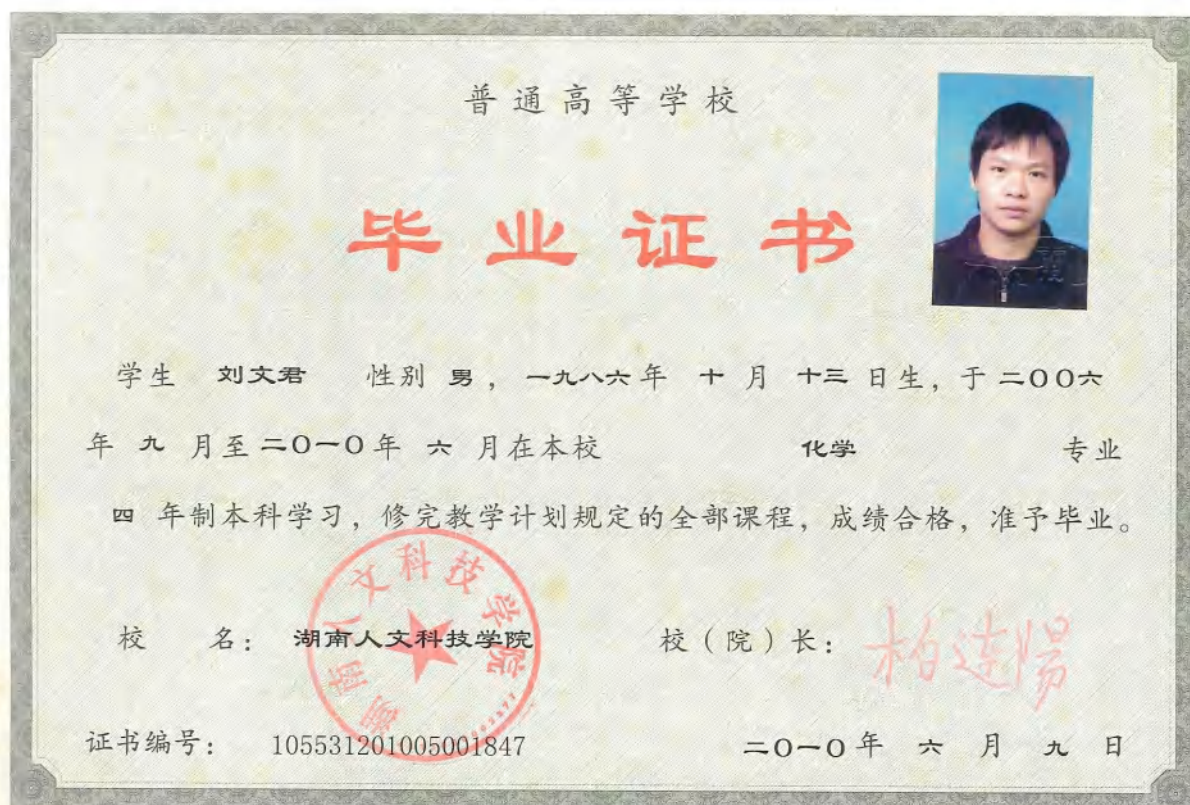 普通高等学校
毕业证书
学生 刘文君 性别 男，一九八六年 十 月 十三 日生，于 二〇〇六
年 九 月至 二〇一〇年 六 月在本校 化学 专业
四 年制本科学习，修完教学计划规定的全部课程，成绩合格，准予毕业。
湖南人文科技学院
校 名： 湖南人文科技学院 校（院）长： 柏连阳
证书编号： 105531201005001847 二〇一〇年 六 月 九 日